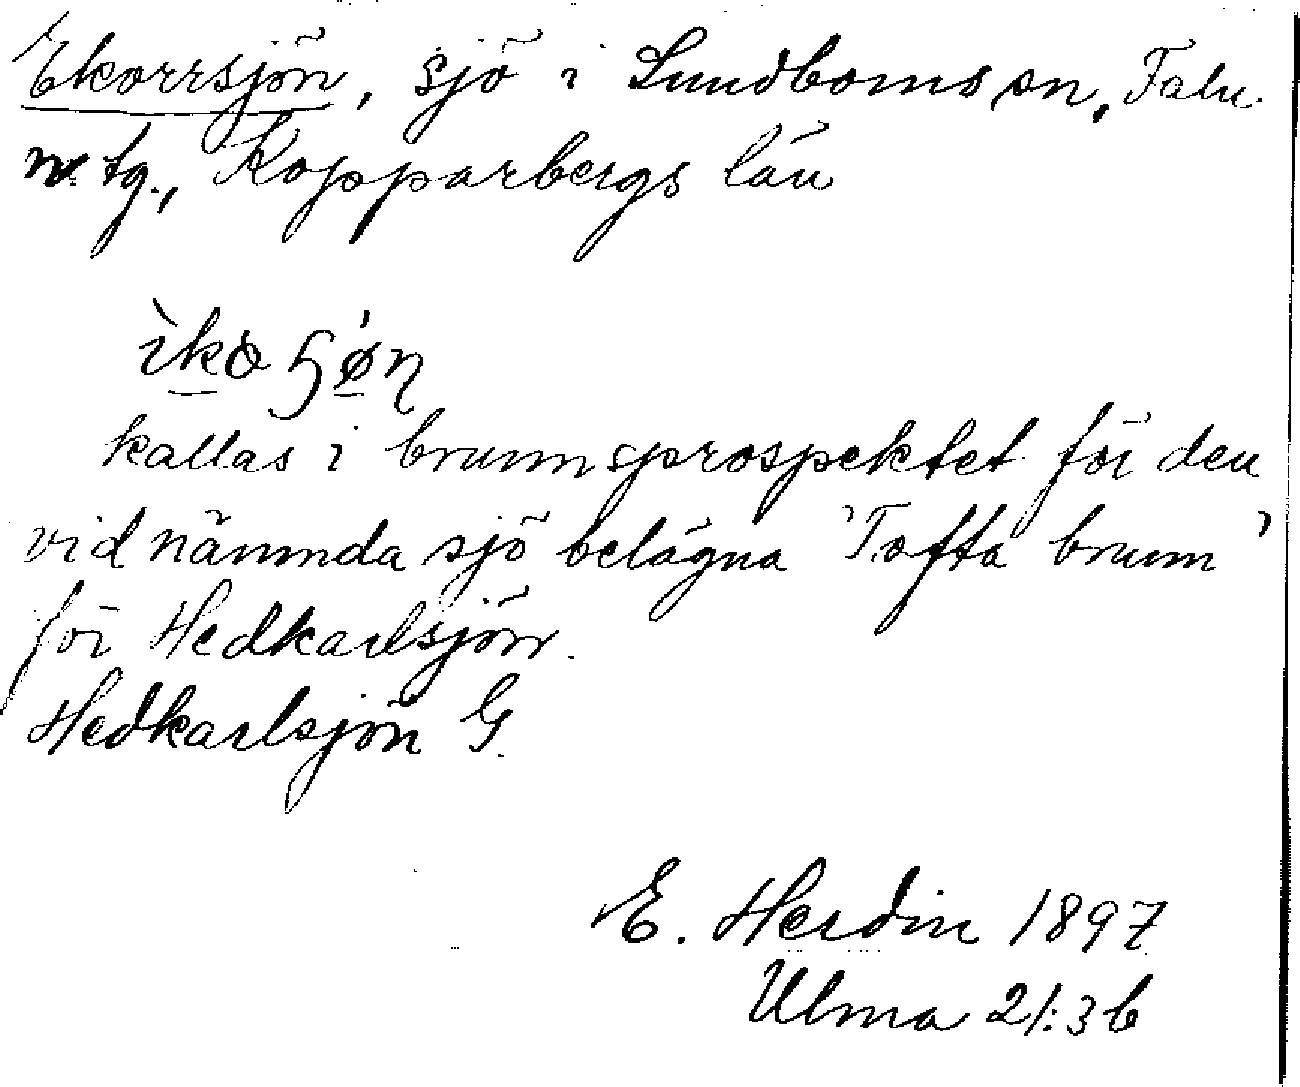 Ekorrsjön, sjö i Sundborns sn, Falu
n. tg., Kopparbergs län
kallas i brunnsprospektet för den
vid nämnda sjö belägna 'Tofta brunn'
för Hedkarlsjön.
Hedkarlsjön G.
E. Herdin 1897
Ulma 21:3b